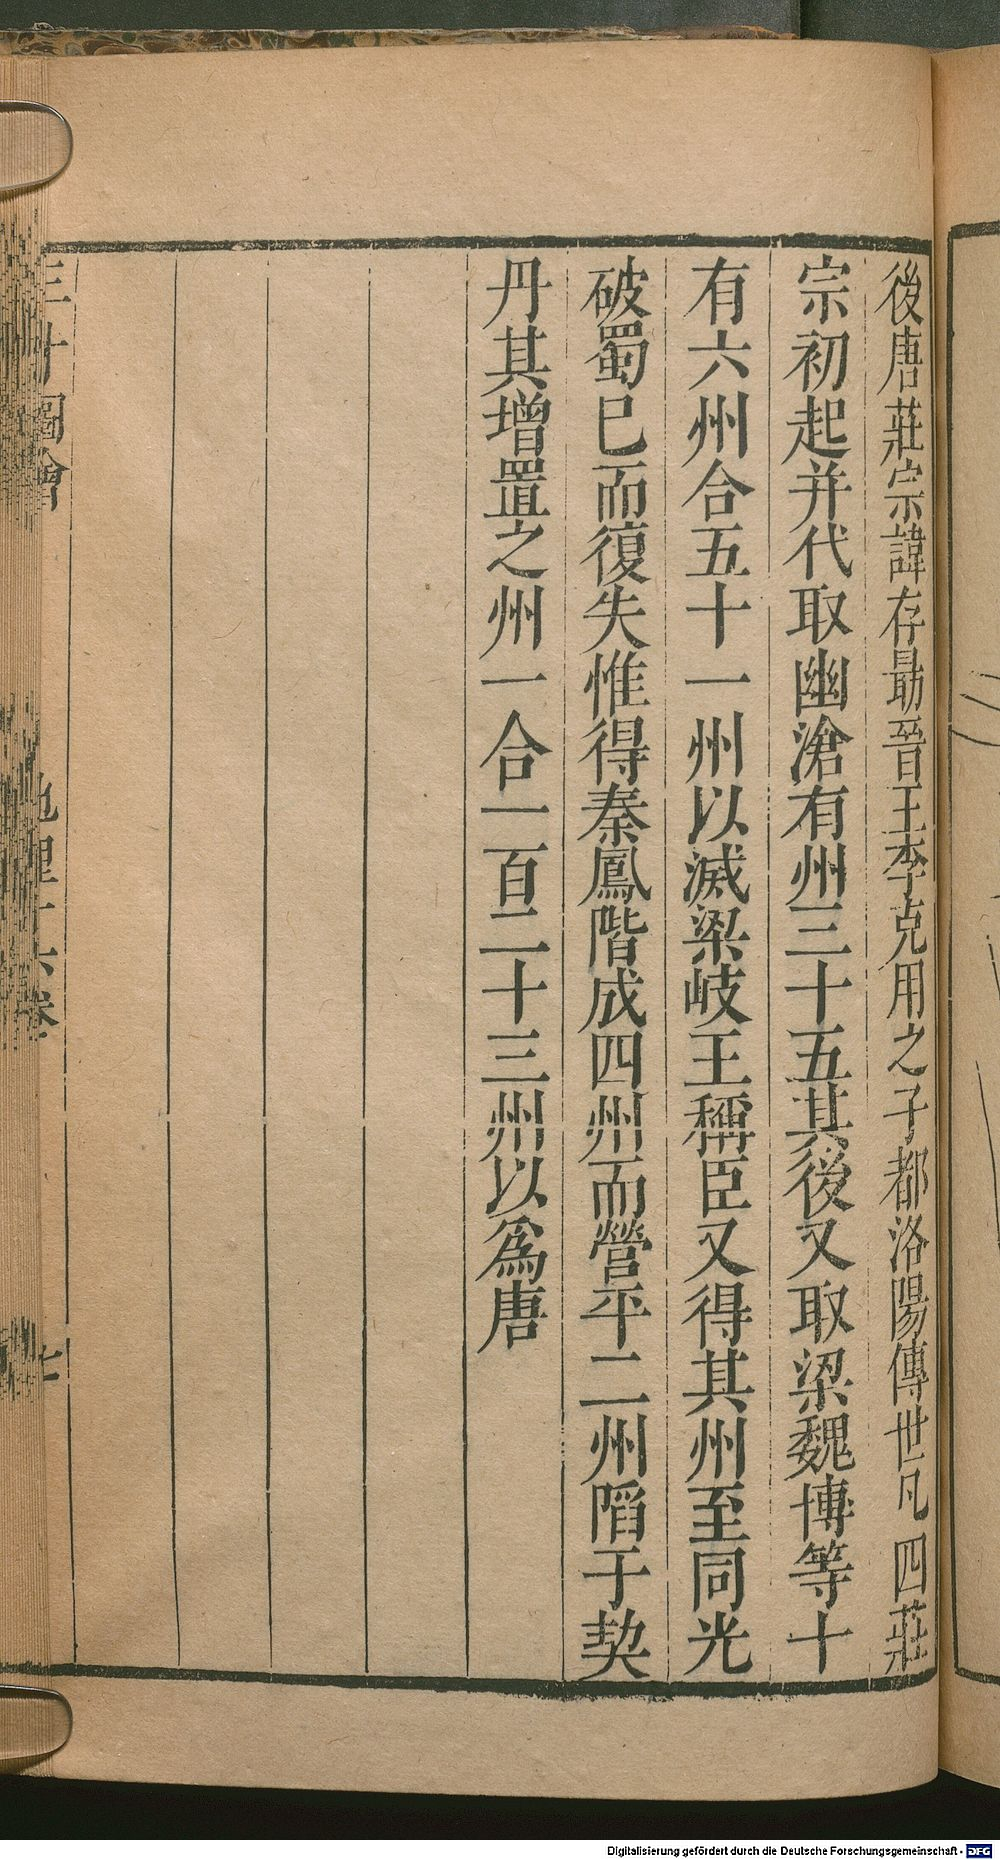 後唐莊宗諱存勗晉王李克用之子都洛陽傳世凡四莊
宗初起并代取幽滄有州三十五其後又取梁魏博等十
有六州合五十一州以滅梁岐王稱臣又得其州至同光
破蜀巳而復失惟得秦鳳階成四州而營平二州陷于契
丹其增置之州一合一百二十三州以爲唐
三才圖會
地理十六卷
七
Digitalisierung gefördert durch die Deutsche Forschungsgemeinschaft - DFG